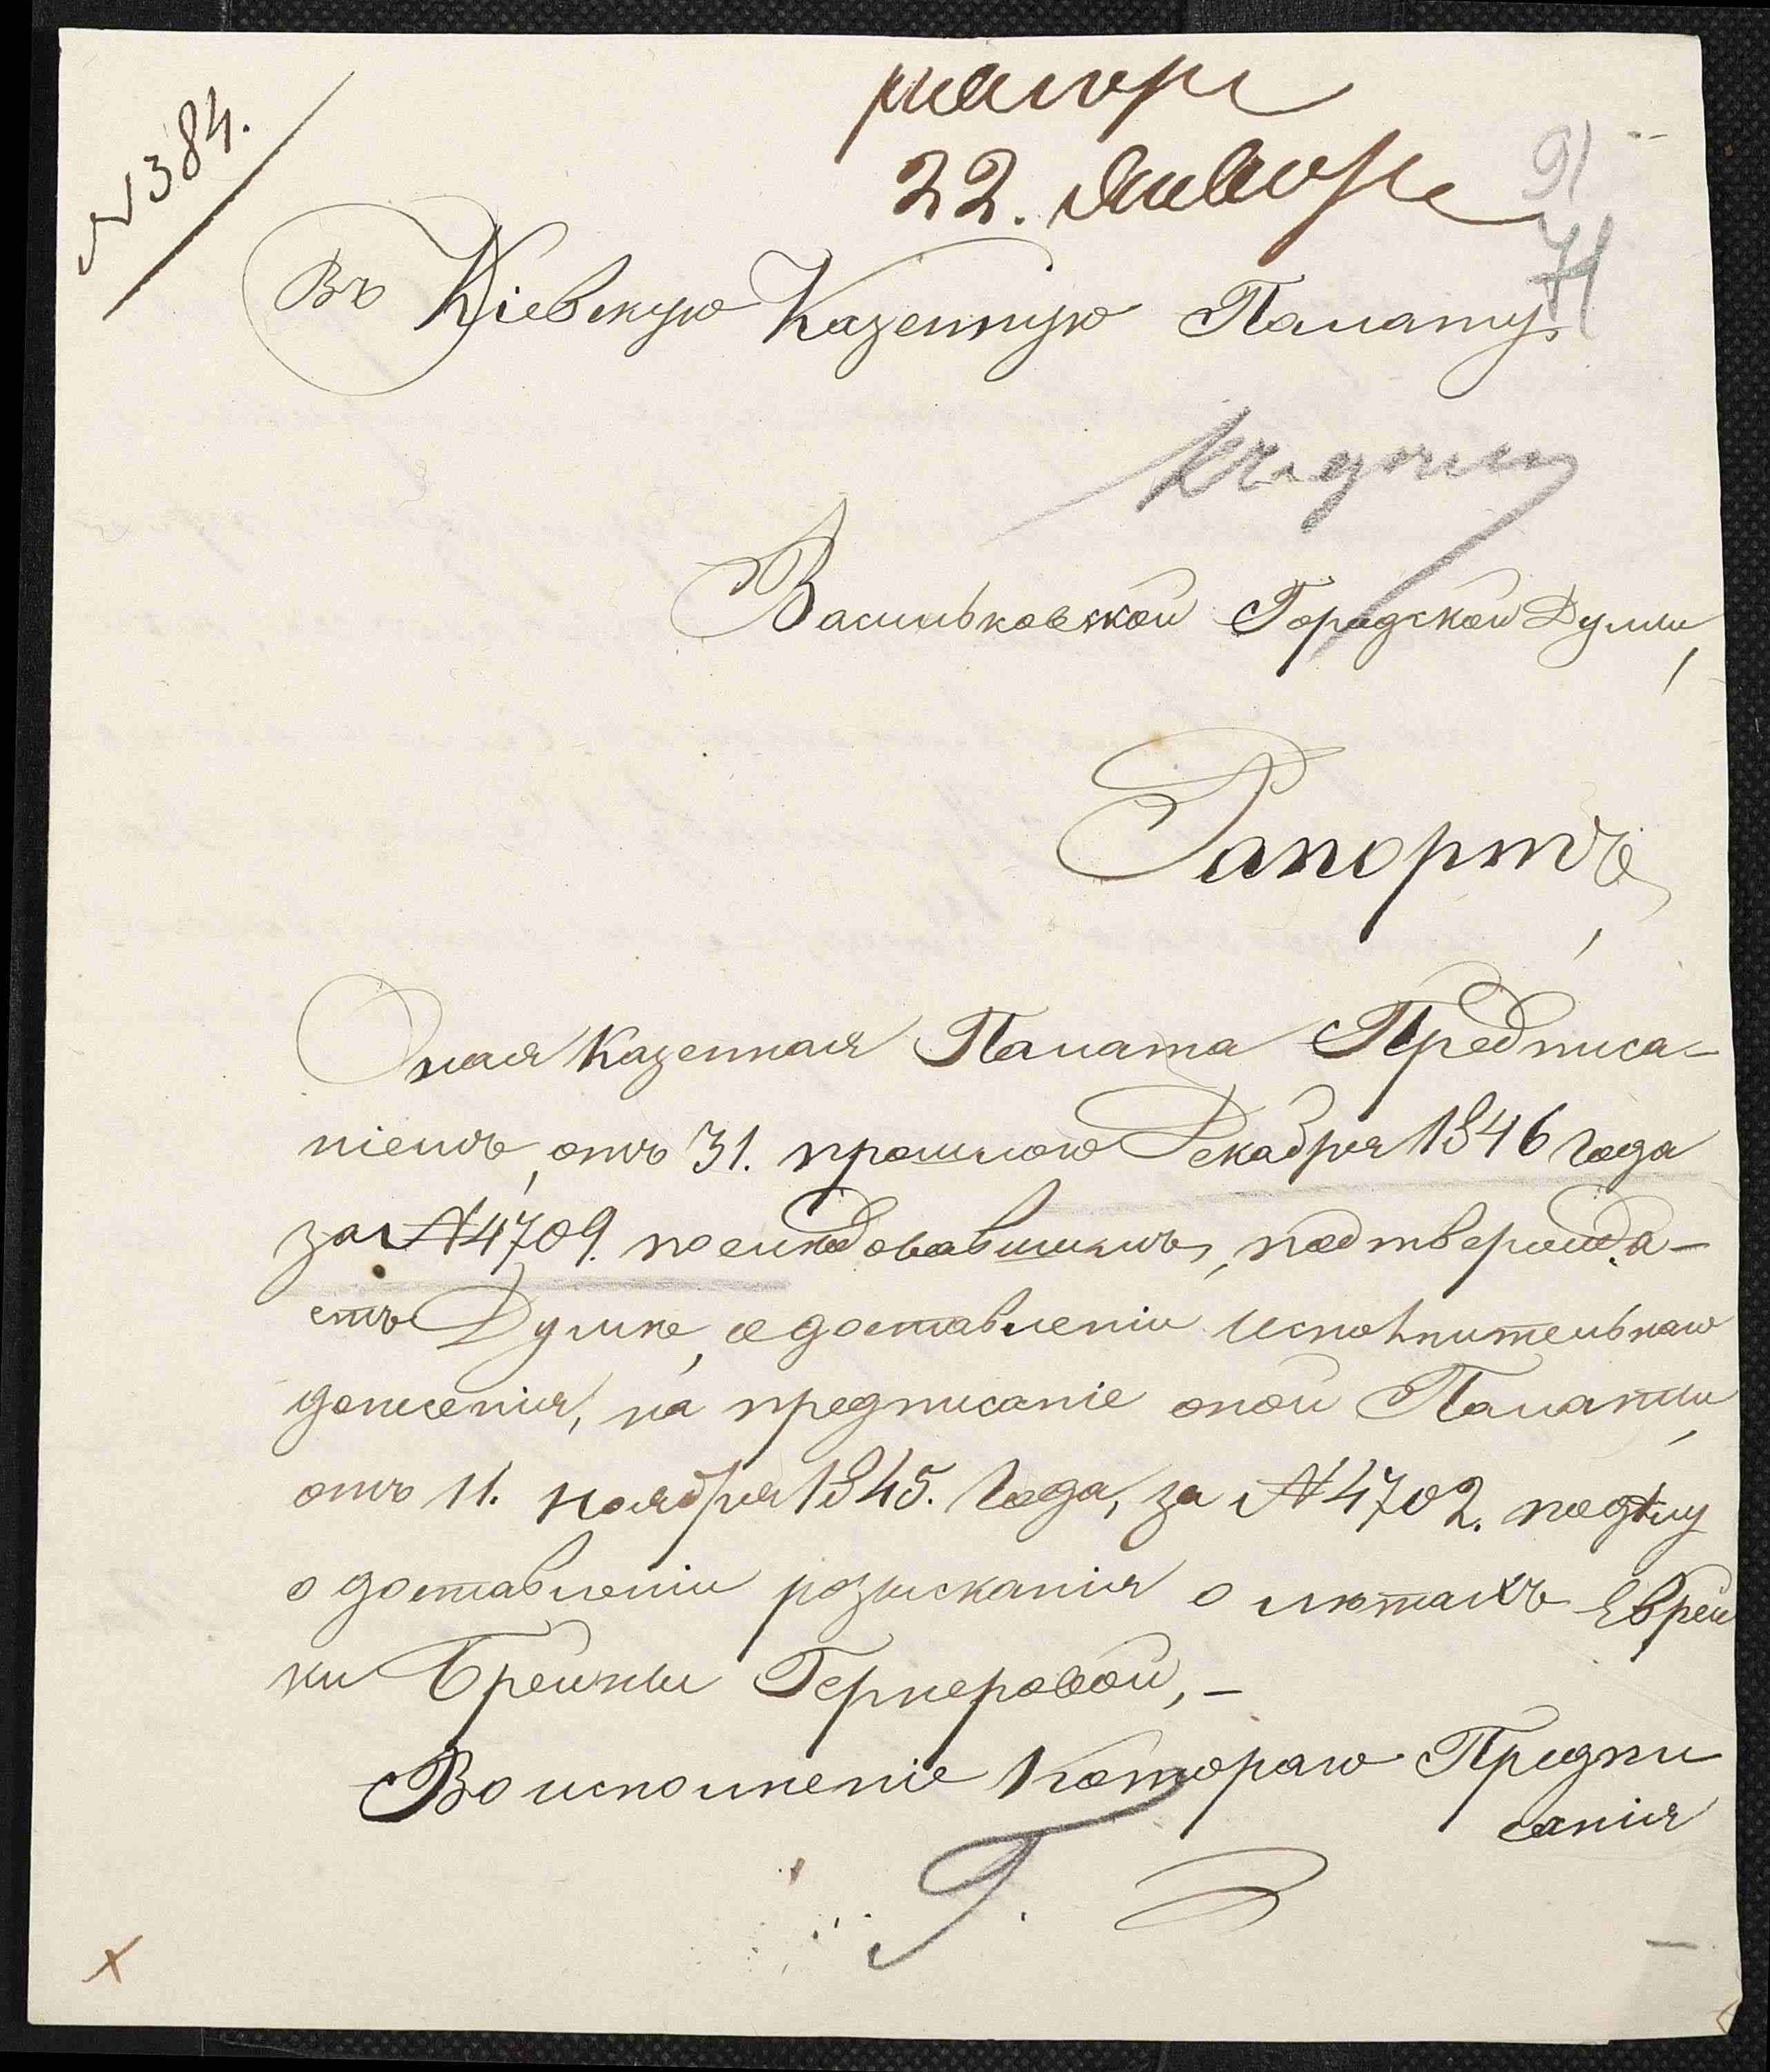 № 384.
22. Января
91
71
Въ Кіевскую Казенную Палату
Васильковской Городской Думы,
Рапортъ,
Оная Казенная Палата Предписа-
ніемъ, отъ 31. прошлого Декабря 1846 года
за № 4709. последовавшимъ, подтвержда-
етъ Думѣ, о доставленіи исполнительнаго
донесенія, на предписаніе оной Палаты,
отъ 11. ноября 1845. года, за № 4702. подѣлу
о доставленіи розысканія о лѣтахъ Еврей
ки Брейны Гернеровой, –
Во исполненіе Котораго Предпи
санія